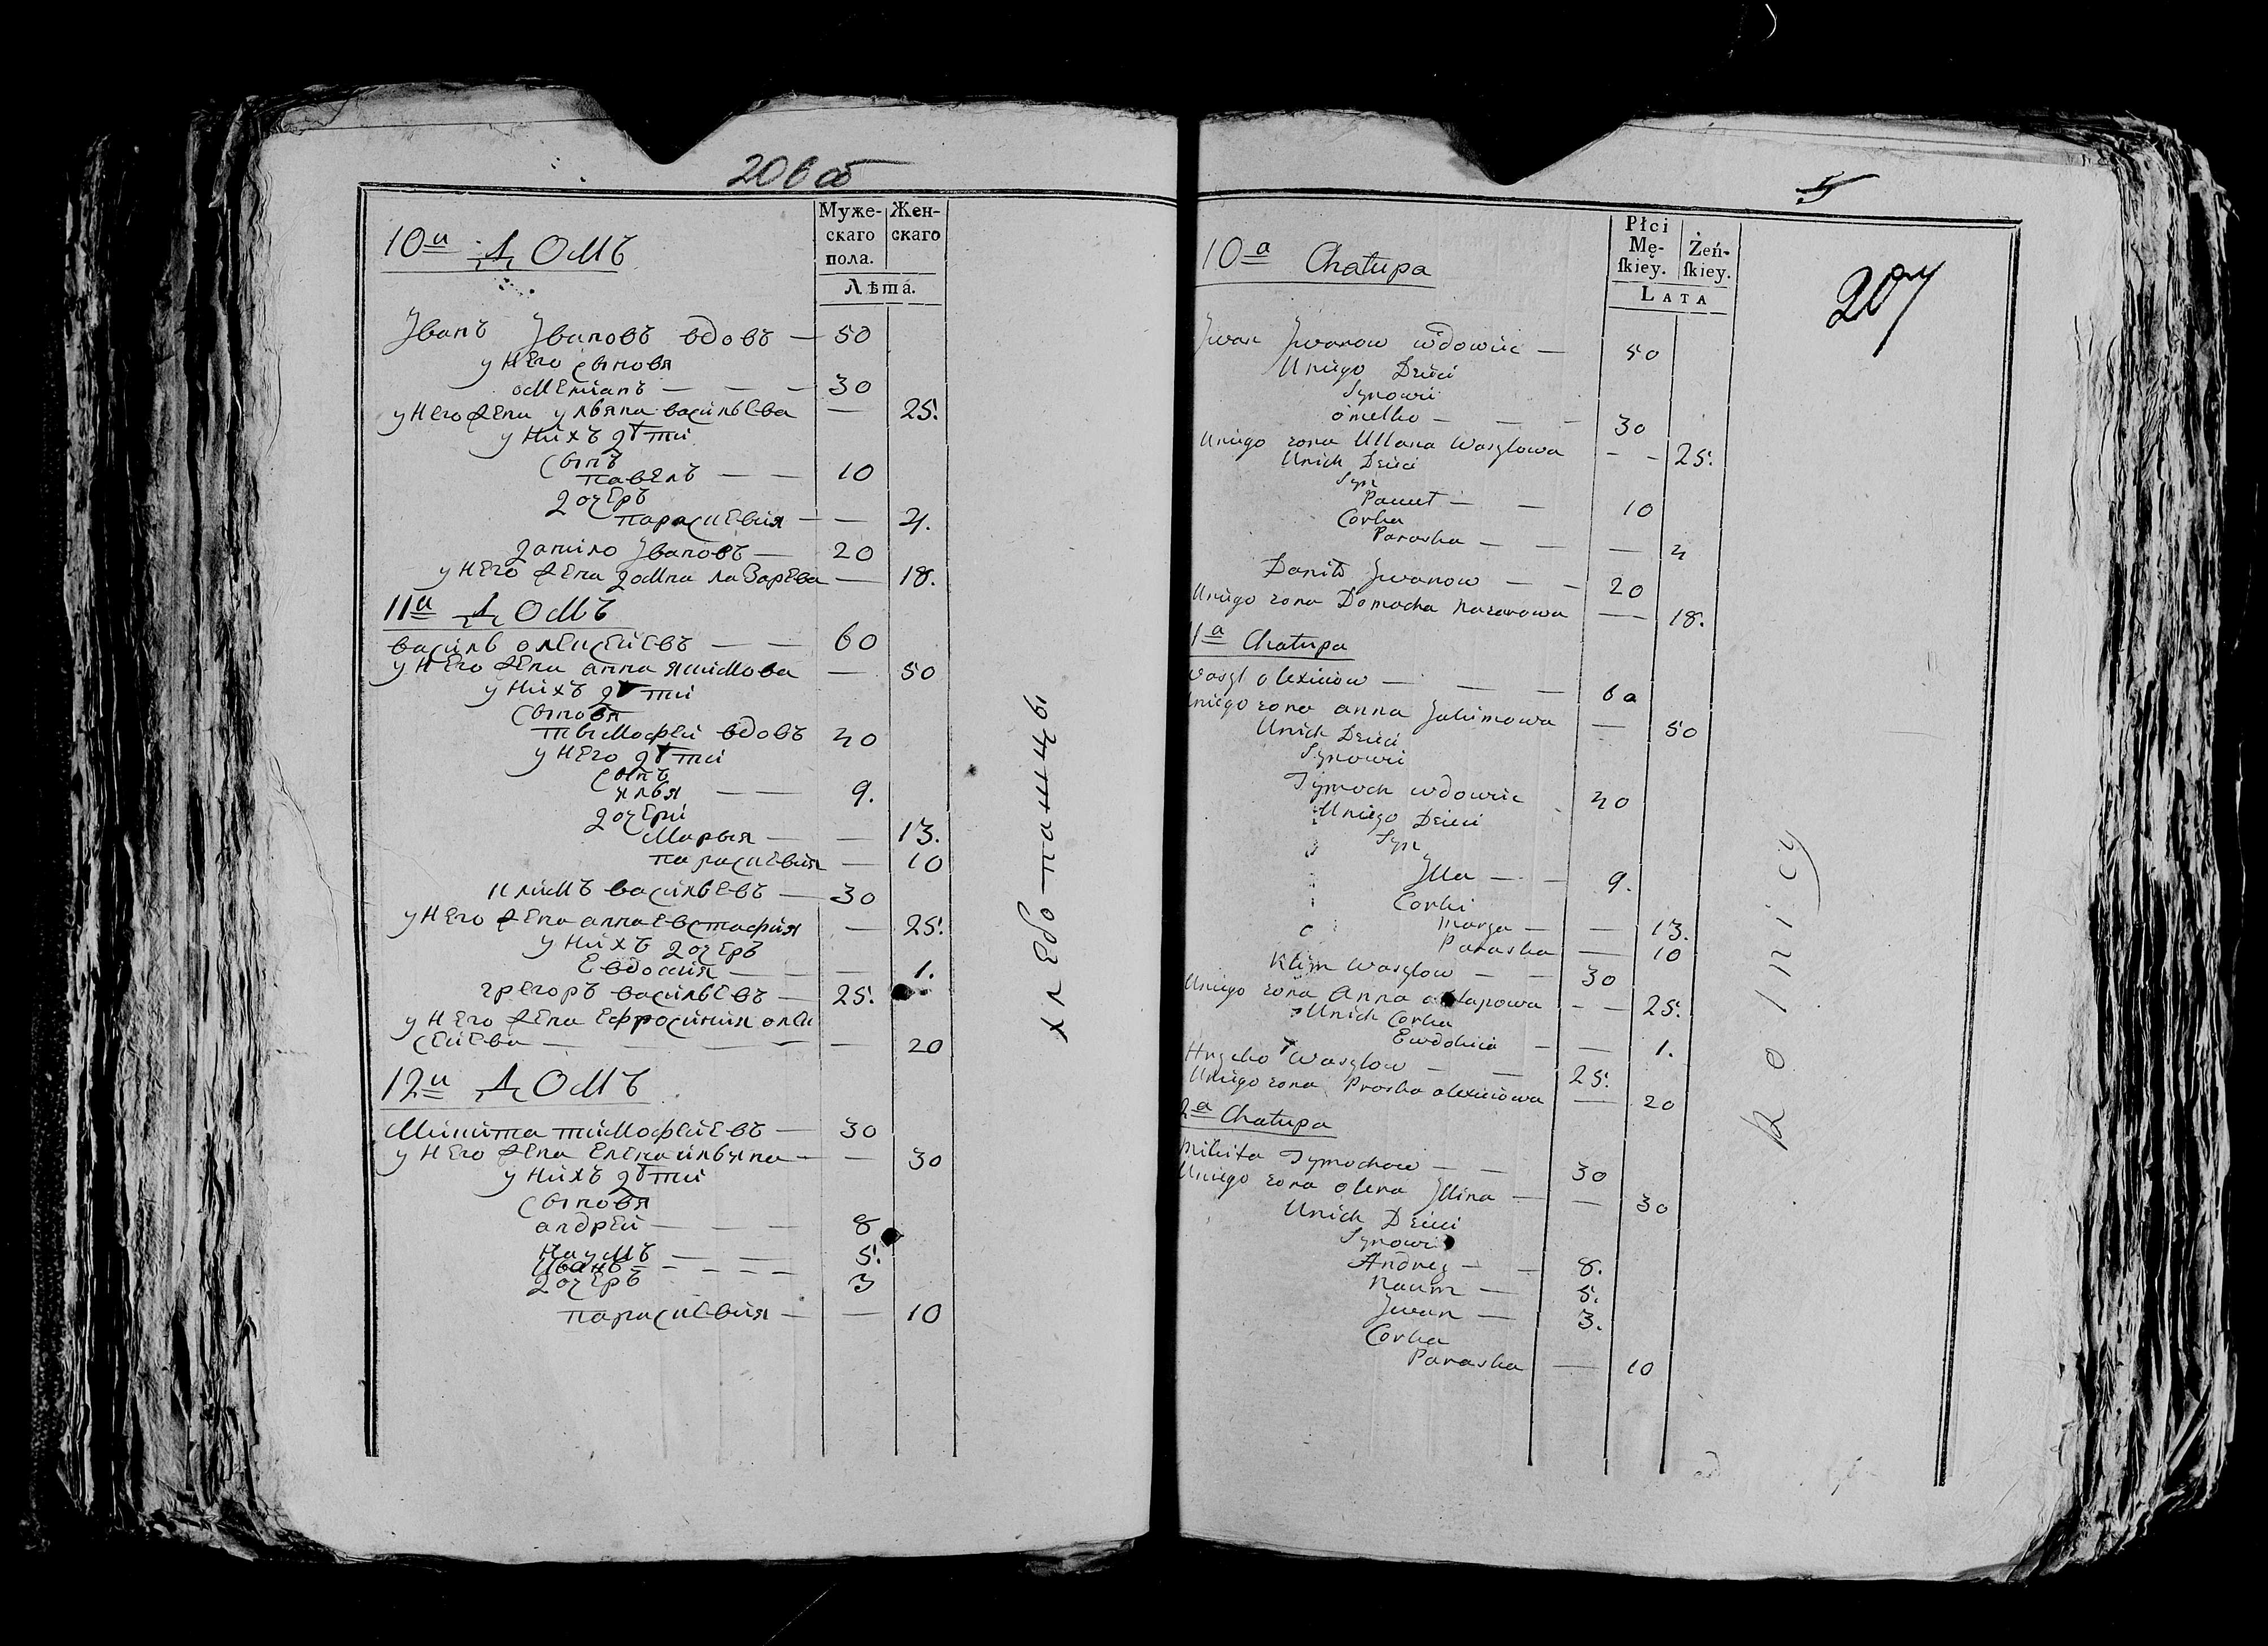 206 об
Муже-
скаго
пола.
Жен-
скаго
Лѣта.
10й ДОМЪ
Іванъ Івановъ вдовъ — 50
у него сыновя
омеліанъ — — — 30
у него жена ульяна васильева — 25.
у нихъ дѣти
сынъ
павелъ — — 10
дочеръ
параскевия — — 4.
данило Івановъ — 20
у него жена домна лазарева — 18.
11й ДОМЪ
василь олексеиевъ — — 60
у него жена анна якимова — 50
у нихъ дѣти
сыновя
тымофеи вдовъ 40
у него дѣти
сынъ
илья — — 9.
дочери
Марья — — 13.
параскевия — 10
климъ васильевъ — 30
у него жена анна евстафия — 25.
у нихъ дочеръ
Евдокия — — — 1.
грегоръ васильевъ — 25.
у него жена Ефросиния олек
сеиева — — — — 20
12й ДОМЪ
Микита тимофеиевъ — 30
у него жена Елена ильина — — 30
у нихъ дѣти
сыновя
андреи — — — 8
Наумъ — — — 5.
Иванъ — — — — 3
дочеръ
параскевия — — 10
хлебопашцы
5
207
Płci
Mę-
ſkiey.
Żeń-
ſkiey.
LATA
10a Chałupa
Jwan Jwanow wdowiec — 50
Uniego Dzieci
Synowie
omelko — — — 30
Uniego zona Ullana Wasylowa — — 25.
Unich Dzieci
Syn
Paweł — — 10
Corka
Paraska — — — 4
Daniło Jwanow — — 20
Uniego zona Domacha Nazarowa — 18.
1a Chałupa
wasyl olexiiow — — — 60
uniego zona anna Jakimowa — 50
Unich Dzieci
Synowie
Tymoch wdowiec 40
Uniego Dzieci
Syn
Jlla — — 9.
Corki
Marya — — 13.
Paraska — 10
Klim Wasylow — — 30
Uniego zona Anna ostapowa — — 25.
Unich Corka
Ewdokia — — 1.
Hrycko Wasylow — — 25.
Uniego zona Proska olexiiowa — 20
2a Chałupa
Mikita Tymochow — — 30
Uniego zona olena Jllina — — 30
Unich Dzieci
Synowie
Andrey — — 8.
Naum — 5.
Jwan — 3.
Corka
Paraska — 10
Rolnicy